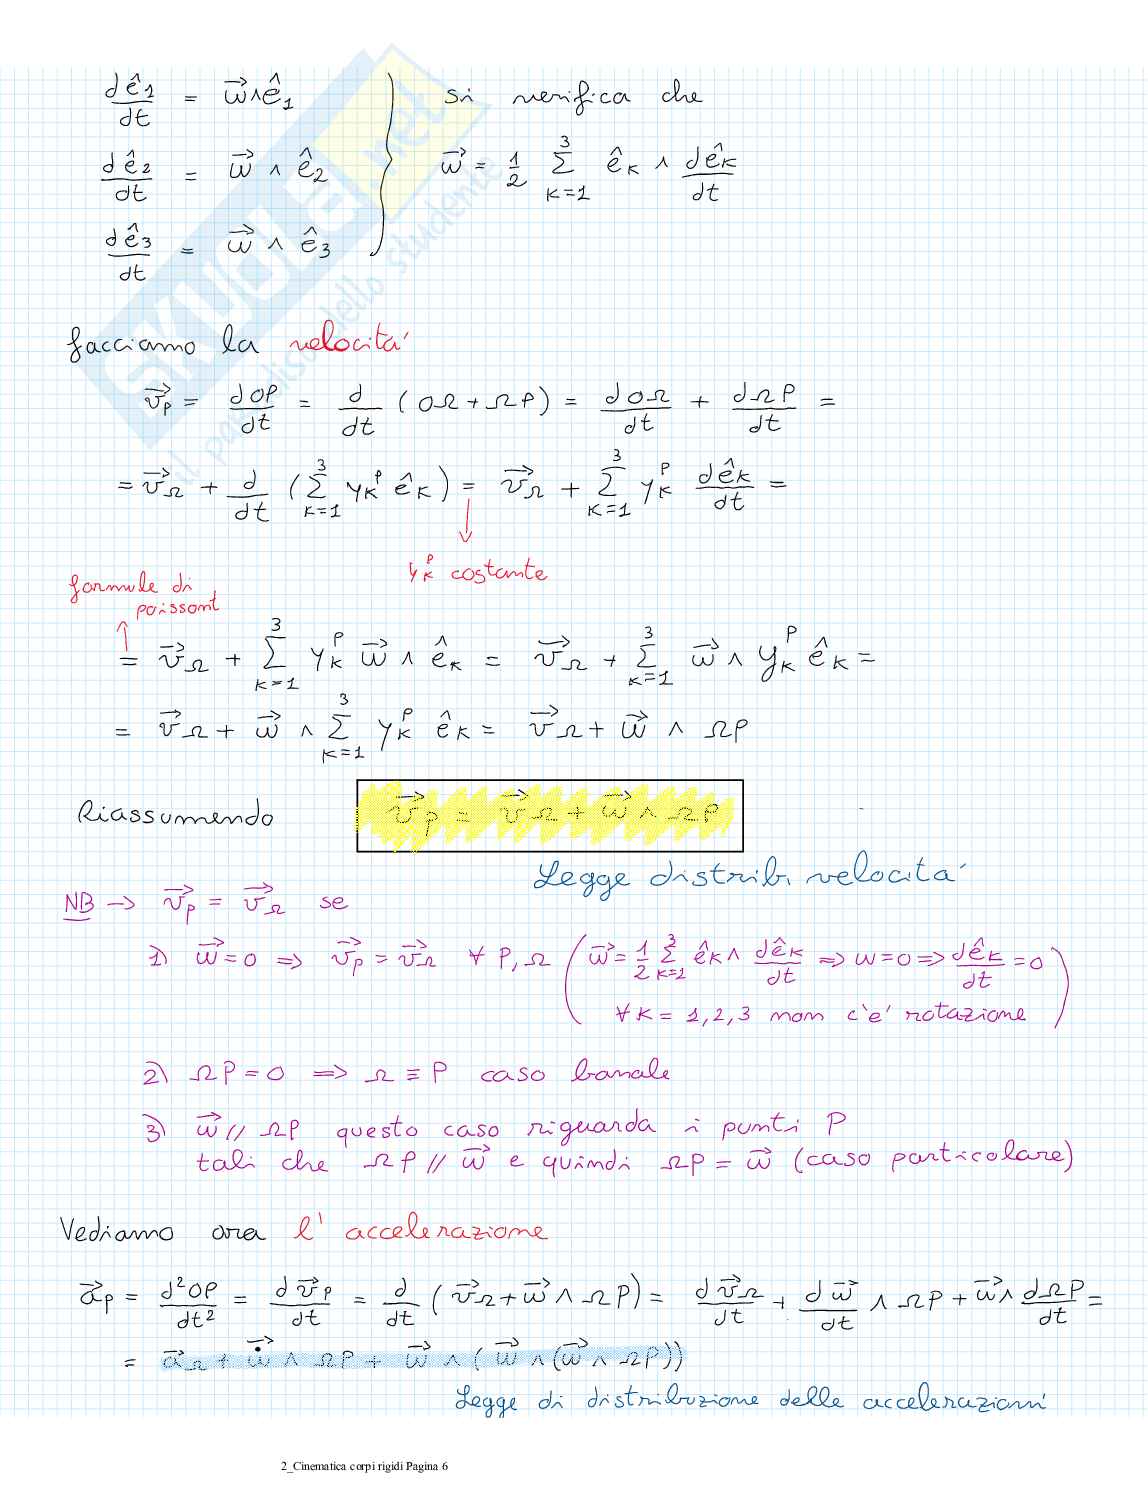 dê1/dt = ω⃗∧ê1 } si verifica che
dê2/dt = ω⃗ ∧ ê2 ω⃗ = 1/2 3∑K=1 êK ∧ dêK/dt
dê3/dt = ω⃗ ∧ ê3
SKUOLA.net
facciamo la velocita'
v⃗P = dOP/dt = d/dt (OΩ + ΩP) = dOΩ/dt + dΩP/dt =
= v⃗Ω + d/dt (3∑K=1 yK^P êK) = v⃗Ω + 3∑K=1 yK^P dêK/dt =
yK^P costante
formule di
poissont
= v⃗Ω + 3∑K=1 yK^P ω⃗ ∧ êK = v⃗Ω + 3∑K=1 ω⃗ ∧ yK^P êK =
= v⃗Ω + ω⃗ ∧ 3∑K=1 yK^P êK = v⃗Ω + ω⃗ ∧ ΩP
Riassumendo v⃗P = v⃗Ω + ω⃗ ∧ ΩP
Legge distrib. velocita'
NB → v⃗P = v⃗Ω se
1) ω⃗=0 ⇒ v⃗P = v⃗Ω ∀ P, Ω (ω⃗ = 1/2 3∑K=1 êK ∧ dêK/dt ⇒ ω=0 ⇒ dêK/dt = 0
∀ K = 1,2,3 non c'e' rotazione)
2) ΩP=0 ⇒ Ω ≡ P caso banale
3) ω⃗ // ΩP questo caso riguarda i punti P
tali che ΩP // ω⃗ e quindi ΩP = ω⃗ (caso particolare)
Vediamo ora l' accelerazione
a⃗P = d²OP/dt² = dv⃗P/dt = d/dt (v⃗Ω + ω⃗ ∧ ΩP) = dv⃗Ω/dt + dω⃗/dt ∧ ΩP + ω⃗ ∧ dΩP/dt =
= a⃗Ω + ω⃗̇ ∧ ΩP + ω⃗ ∧ (ω⃗ ∧ (ω⃗ ∧ ΩP))
Legge di distribuzione delle accelerazioni
2_Cinematica corpi rigidi Pagina 6